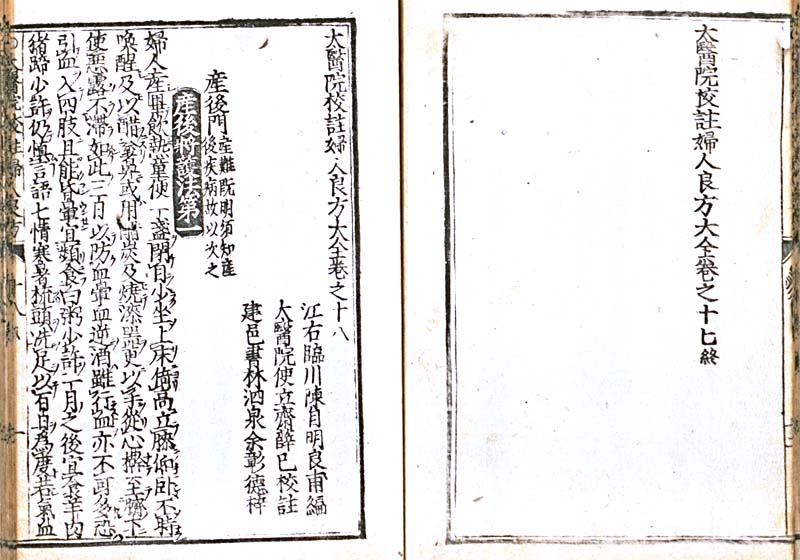 太醫院校註婦人良方大全卷之十七終
太醫院校註婦人良方大全卷之十八
江右臨川陳自明良甫編
大醫院使立齋薛已校註
建邑書林泗泉余彰德梓
産後門
産難既明須知産
後疾病故以次之
産後將護法第一
婦人産畢飲熱童便一盞閉目少坐上床倚高立膝仰卧不時
喚醒及以醋塗鼻或用醋炭及燒漆器更以手從心擀至臍下
使惡露不滯如此三日以防血暈血逆酒雖行血亦不可多恐
引血入四肢且能昏暈宜頻食白粥少許一月之後宜食羊肉
猪蹄少許仍慎言語七情寒暑梳頭洗足以百日爲度若氣血